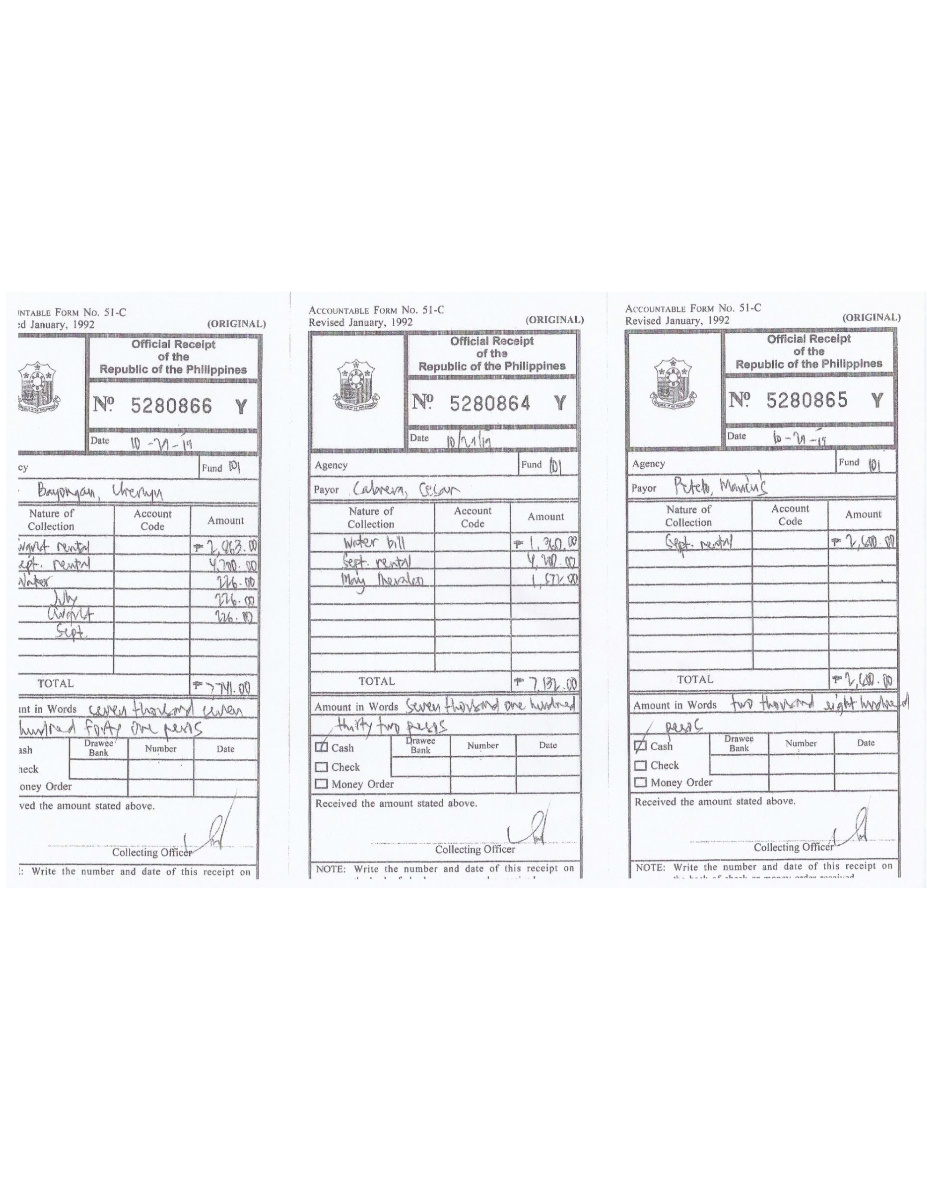 NTABLE FORM No. 51-C
ed January, 1992 (ORIGINAL)
Official Receipt
of the
Republic of the Philippines
Nº 5280866 Y
Date 10-21-19
cy Fund 101
Nature of Collection Account Code Amount
August rental ₱ 2,863.00
ept. rental 4,200.00
Water 226.00
July 226.00
August 226.00
Sept.
TOTAL ₱ 7,741.00
nt in Words seven thousand seven
hundred forty one pesos
ash Drawee Bank Number Date
heck
oney Order
ved the amount stated above.
Collecting Officer
: Write the number and date of this receipt on
ACCOUNTABLE FORM No. 51-C
Revised January, 1992 (ORIGINAL)
Official Receipt
of the
Republic of the Philippines
Nº 5280864 Y
Date 10/21/19
Agency Fund 101
Payor Cabrera, Cesar
Nature of Collection Account Code Amount
Water bill ₱ 1,360.00
Sept. rental 4,200.00
May Meralco 1,572.00
TOTAL ₱ 7,132.00
Amount in Words seven thousand one hundred
thirty two pesos
Cash Drawee Bank Number Date
Check
Money Order
Received the amount stated above.
Collecting Officer
NOTE: Write the number and date of this receipt on
ACCOUNTABLE FORM No. 51-C
Revised January, 1992 (ORIGINAL)
Official Receipt
of the
Republic of the Philippines
Nº 5280865 Y
Date 10-21-19
Agency Fund 101
Payor
Nature of Collection Account Code Amount
Sept. rental ₱ 2,800.00
TOTAL ₱ 2,800.00
Amount in Words two thousand eight hundred
pesos
Cash Drawee Bank Number Date
Check
Money Order
Received the amount stated above.
Collecting Officer
NOTE: Write the number and date of this receipt on
the back of check or money order received.